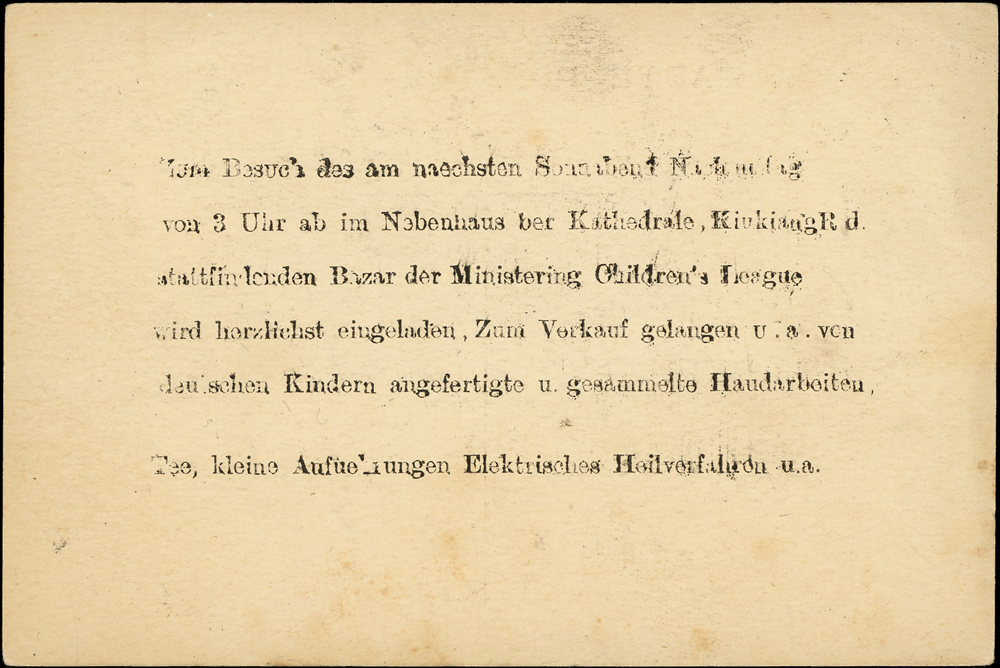 Zum Besuch des am naechsten Sonnabend Nachmittag
von 3 Uhr ab im Nebenhaus ber Kathedrale, Kiukiang R d.
stattfindenden Bazar der Ministering Children's League
wird herzlichst eingeladen, Zum Verkauf gelangen u. a. von
deutschen Kindern angefertigte u. gesammelte Handarbeiten,
Tee, kleine Aufuehrungen Elektrisches Heilverfahren u.a.